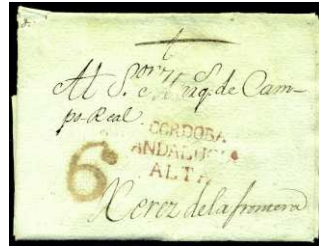 Al S.or Marq.s de Cam-
po-Real
CORDOBA
ANDALUCIA
ALTA
6
Xerez de la fromera